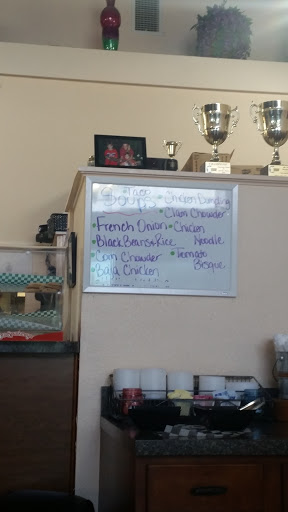 Soups
Taco
French Onion
Black Beans & Rice
Corn Chowder
Baja Chicken
Chicken Dumpling
Clam Chowder
Chicken
Noodle
Tomato
Bisque